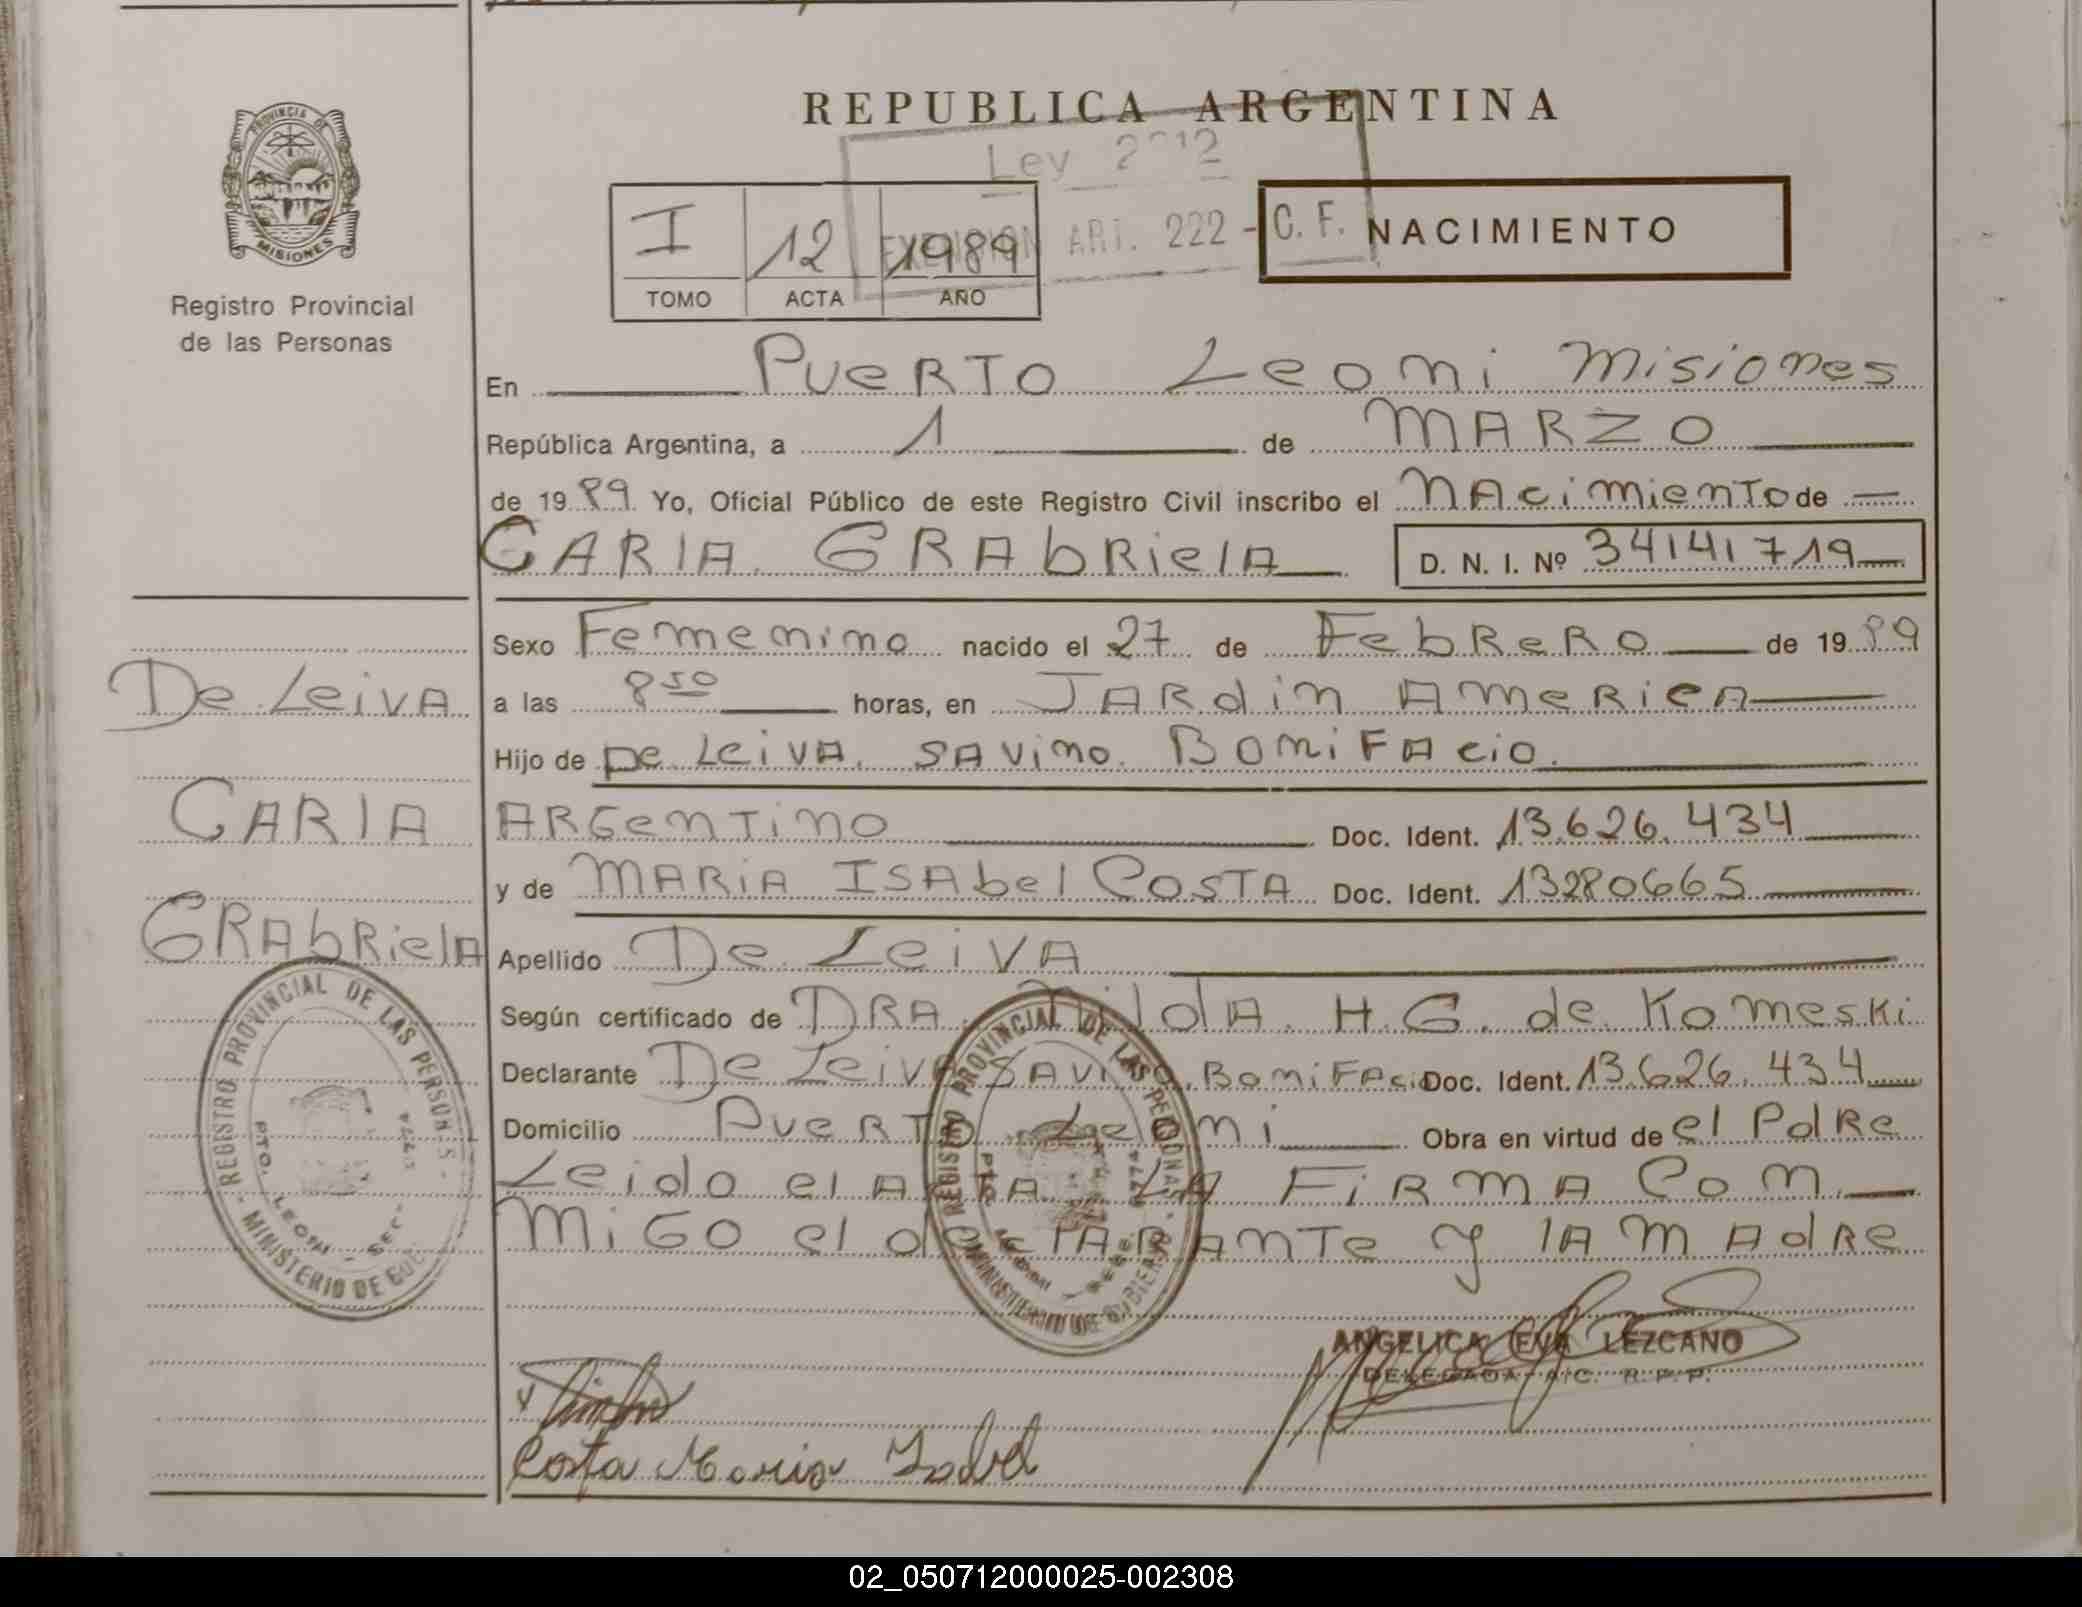 REPUBLICA ARGENTINA
PROVINCIA DE
MISIONES
Registro Provincial
de las Personas
Ley 2
EXENCION ART. 222 - C. F.
I 12 1989
TOMO ACTA AÑO
NACIMIENTO
En PUERTO Leoni Misiones
República Argentina, a 1 de MARZO
de 1989 Yo, Oficial Público de este Registro Civil inscribo el NAcimiento de
CARIA GRAbRielA D. N. I. Nº 34141719
Sexo Femenino nacido el 27 de FebReRO de 1989
a las 8 50 horas, en JARdin AmeRicA
Hijo de De LeiVA. SAVino. BoniFAcio.
ARGenTino Doc. Ident. 13.626.434
y de MARiA ISAbel COSTA Doc. Ident. 13280665
Apellido De LeiVA
Según certificado de DRA. NildA. H. G. de Komeski
Declarante De LeiVA SAVino. BoniFAcio Doc. Ident. 13.626.434
Domicilio PueRTO Leoni Obra en virtud de el PdRe
Leido el AcTA LA FiRMA Con
MiGO el declARAnTe y lA mAdRe
De LeiVA
CARIA
GRAbRielA
REGISTRO PROVINCIAL DE LAS PERSONAS
- MINISTERIO DE GOB.
PTO. LEONI - SEC.
REGISTRO PROVINCIAL DE LAS PERSONAS
MINISTERIO DE GOBIERNO
ANGELICA EVA LEZCANO
DELEGADA A/C. R. P. P.
Costa Maria Isabel
02_050712000025-002308